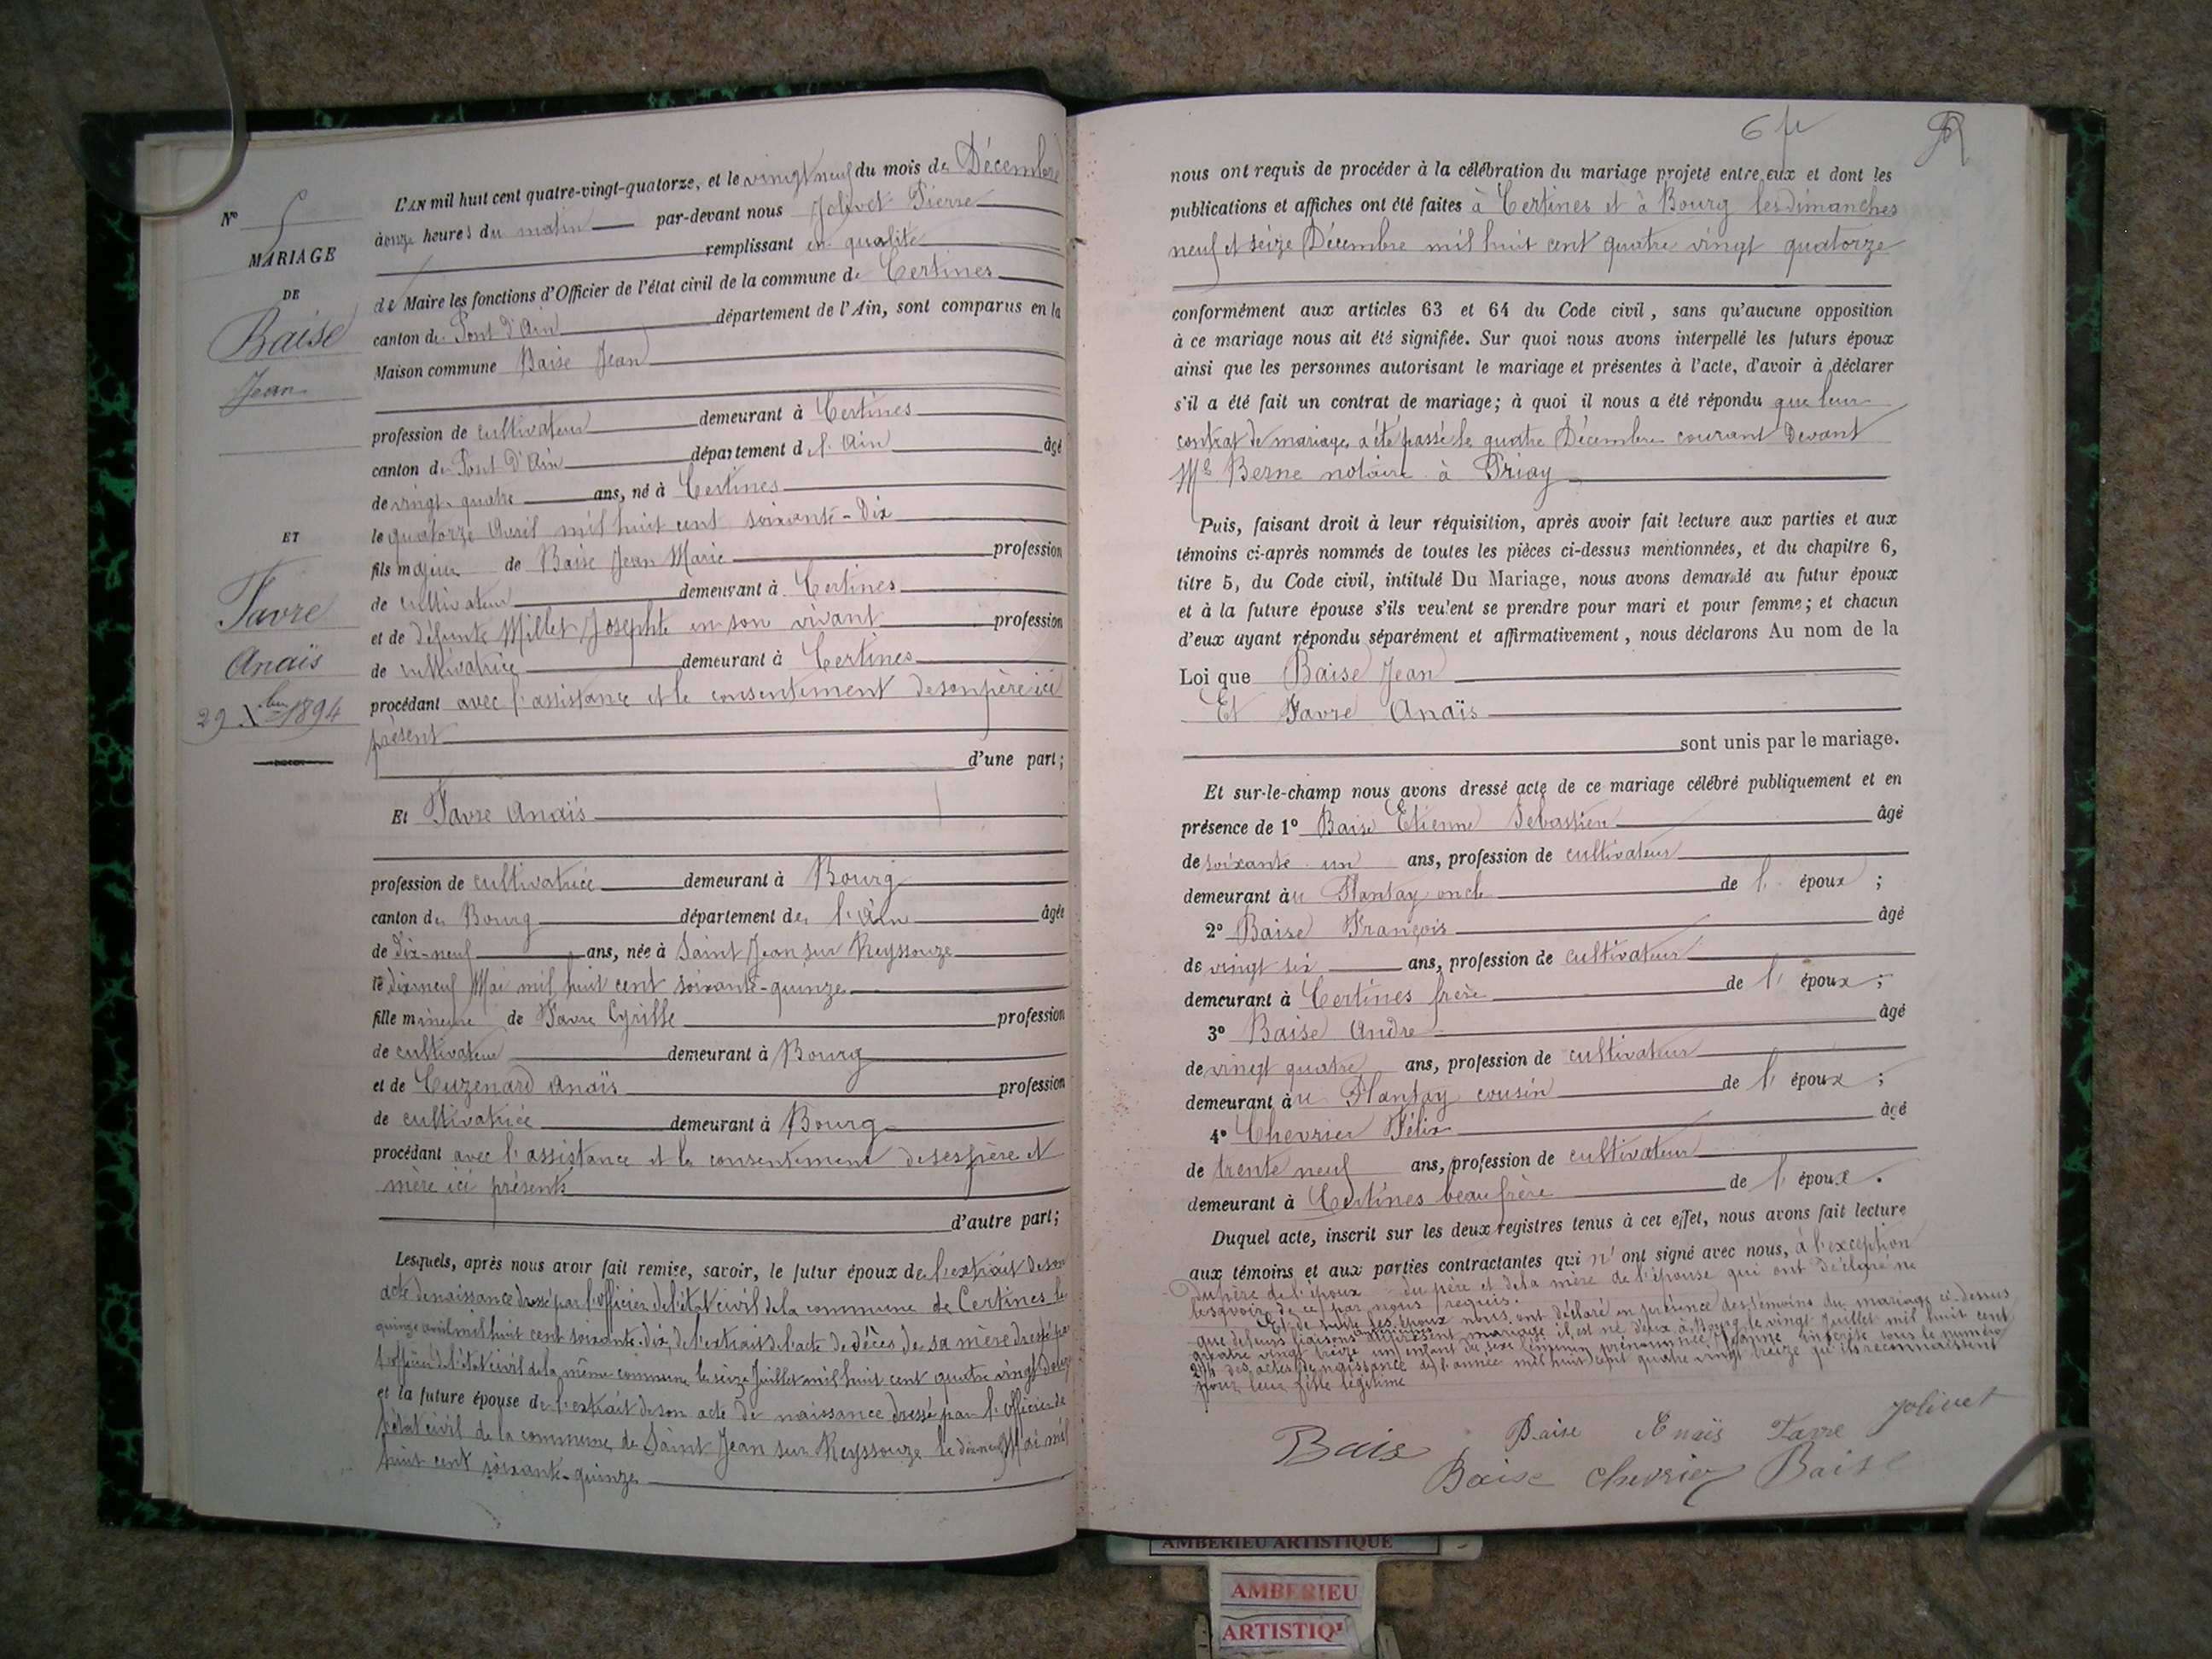 N° 5
MARIAGE
DE
Baise
Jean
ET
Favre
Anaïs
29 Xbre 1894
L'AN mil huit cent quatre-vingt-quatorze, et le vingt neuf du mois de Décembre
à onze heures du matin par-devant nous Jolivet Pierre
remplissant en qualité
de Maire les fonctions d'Officier de l'état civil de la commune de Certines
canton de Pont d'Ain département de l'Ain, sont comparus en la
Maison commune Baise Jean
profession de cultivateur demeurant à Certines
canton de Pont D'Ain département de l'Ain âgé
de vingt-quatre ans, né à Certines
le quatorze Avril mil huit cent soixante-dix
fils majeur de Baise Jean Marie profession
de cultivateur demeurant à Certines
et de défunte Millet Josephte en son vivant profession
de cultivatrice demeurant à Certines
procédant avec l'assistance et le consentement de son père ici
présent
d'une part;
Et Favre Anaïs
profession de cultivatrice demeurant à Bourg
canton de Bourg département de l'Ain âgée
de dix-neuf ans, née à Saint Jean sur Reyssouze
le dix neuf Mai mil huit cent soixante-quinze
fille mineure de Favre Cyrille profession
de cultivateur demeurant à Bourg
et de Cuzenard Anaïs profession
de cultivatrice demeurant à Bourg
procédant avec l'assistance et le consentement de ses père et
mère ici présents
d'autre part;
Lesquels, après nous avoir fait remise, savoir, le futur époux de l'extrait de son
acte de naissance dressé par l'officier de l'état civil de la commune de Certines le
quinze avril mil huit cent soixante-dix, de l'extrait de l'acte de décès de sa mère dressé par
l'officier de l'état civil de la même commune le seize Juillet mil huit cent quatre vingt douze
et la future épouse de l'extrait de son acte de naissance dressé par l'officier de
l'état civil de la commune de Saint Jean sur Reyssouze le dix neuf Mai mil
huit cent soixante-quinze
6
nous ont requis de procéder à la célébration du mariage projeté entre eux et dont les
publications et affiches ont été faites à Certines et à Bourg les dimanches
neuf et seize Décembre mil huit cent quatre vingt quatorze
conformément aux articles 63 et 64 du Code civil, sans qu'aucune opposition
à ce mariage nous ait été signifiée. Sur quoi nous avons interpellé les futurs époux
ainsi que les personnes autorisant le mariage et présentes à l'acte, d'avoir à déclarer
s'il a été fait un contrat de mariage; à quoi il nous a été répondu que leur
contrat de mariage a été passé le quatre Décembre courant devant
Me Berne notaire à Priay
Puis, faisant droit à leur réquisition, après avoir fait lecture aux parties et aux
témoins ci-après nommés de toutes les pièces ci-dessus mentionnées, et du chapitre 6,
titre 5, du Code civil, intitulé Du Mariage, nous avons demandé au futur époux
et à la future épouse s'ils veulent se prendre pour mari et pour femme; et chacun
d'eux ayant répondu séparément et affirmativement, nous déclarons Au nom de la
Loi que Baise Jean
Et Favre Anaïs
sont unis par le mariage.
Et sur-le-champ nous avons dressé acte de ce mariage célébré publiquement et en
présence de 1° Baise Etienne Sebastien âgé
de soixante un ans, profession de cultivateur
demeurant au Plantay oncle de l'époux;
2° Baise François âgé
de vingt six ans, profession de cultivateur
demeurant à Certines frère de l'époux;
3° Baise André âgé
de vingt quatre ans, profession de cultivateur
demeurant au Plantay cousin de l'époux;
4° Chevrier Félix âgé
de trente neuf ans, profession de cultivateur
demeurant à Certines beau frère de l'époux.
Duquel acte, inscrit sur les deux registres tenus à cet effet, nous avons fait lecture
aux témoins et aux parties contractantes qui n' ont signé avec nous, à l'exception
du père de l'époux du père et de la mère de l'épouse qui ont déclaré ne
le savoir de ce par nous requis.
Et de suite les époux nous ont déclaré en présence des témoins du mariage ci-dessus
que de leurs liaisons mariage il est né d'eux à Bourg le vingt Juillet mil huit cent
quatre vingt treize un enfant du sexe féminin prénommée Jeanne inscrite sous le numéro
des actes de naissance de l'année mil huit cent quatre vingt treize qu'ils reconnaissent
pour leur fille légitime
Baise Baise Anaïs Favre Jolivet
Baise Chevrier Baise
AMBERIEU ARTISTIQUE
AMBERIEU
ARTISTIQ